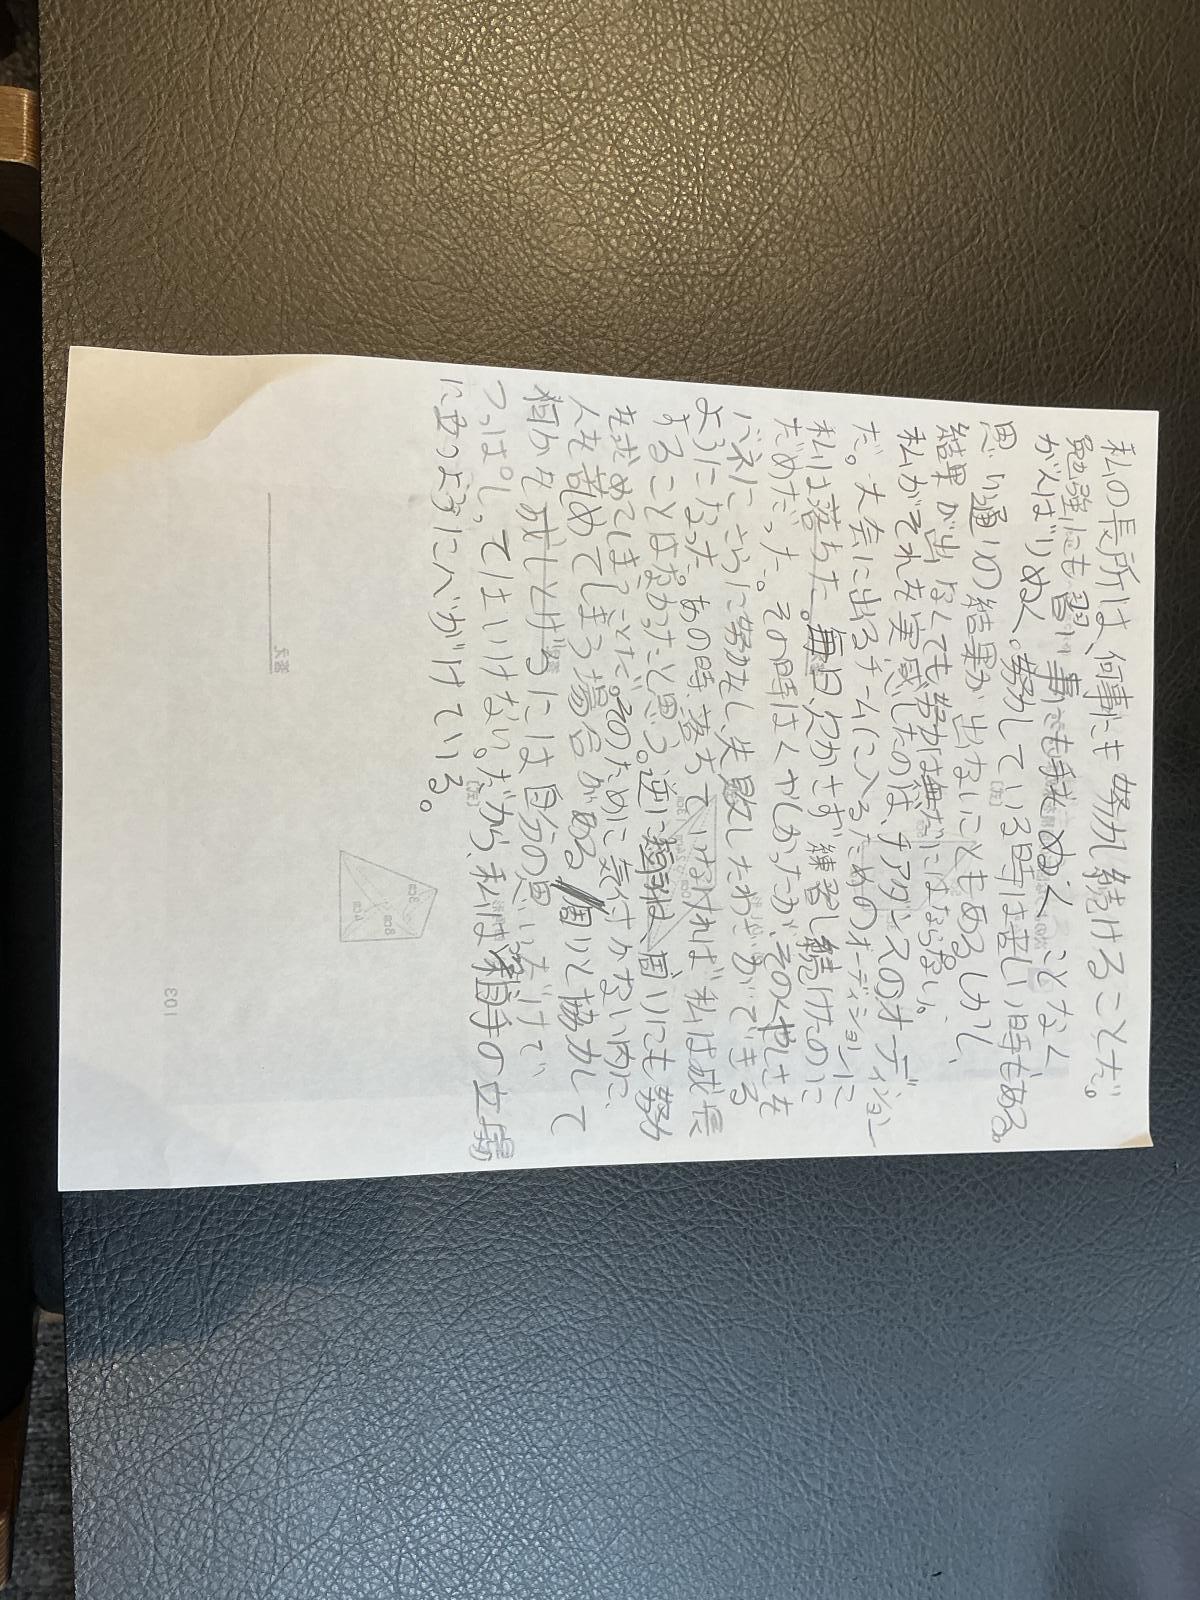 私の長所は、何事にも努力し続けることだ。
勉強にも習い事でも手をぬくことなく
がんばりぬく。努力している時は苦しい時もある。
思い通りの結果が出ないこともある。しかし、
結果が出なくても努力は無だにはならない。
私がそれを実感したのは、チアダンスのオーディション
だ。大会に出るチームに入るためのオーディションに
私は落ちた。毎日欠かさず練習し続けたのに
だめだった。その時はくやしかったが、そのくやしさを
バネにさらに努力をし、失敗したわざができる
ようになった。あの時、落ちていなければ私は成長
することはなかったと思う。逆に短所は、周りにも努力
を求めてしまうことだ。そのために気付かない内に、
人を苦めてしまう場合がある。周りと協力して
何かを成しとげるには自分の思いだけで
つっぱしってはいけない。だから、私は相手の立場
になるように心がけている。
答え
103